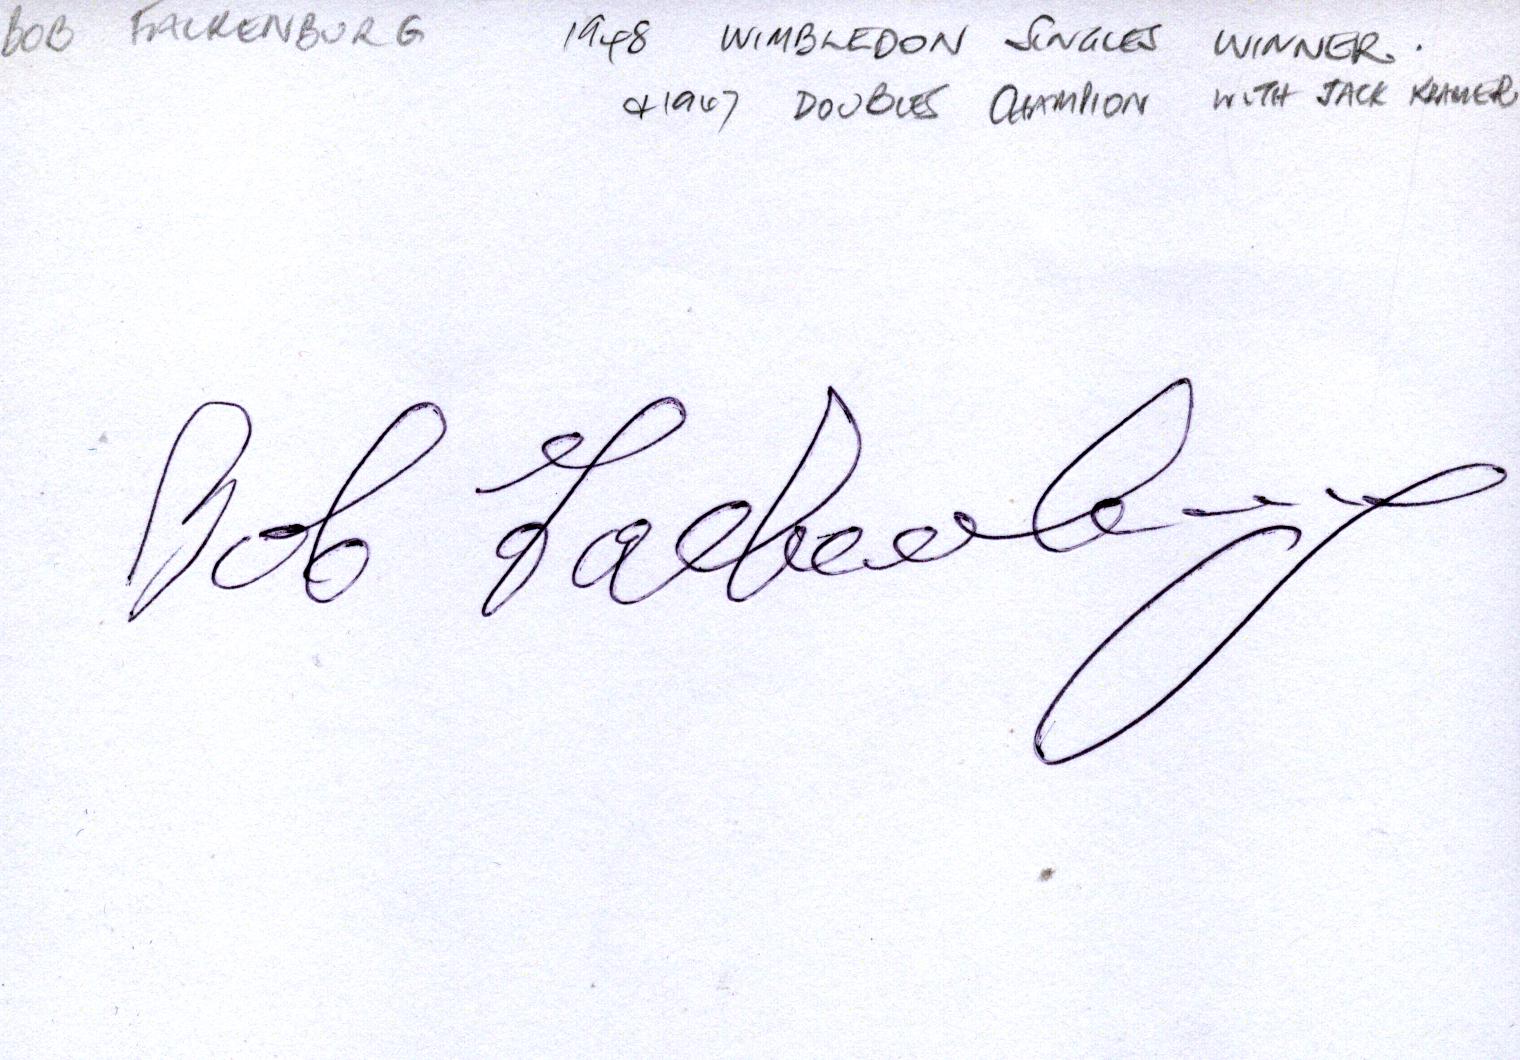 BOB FALKENBURG 1948 WIMBLEDON SINGLES WINNER.
& 1947 DOUBLES CHAMPION WITH JACK KRAMER
Bob Falkenburg